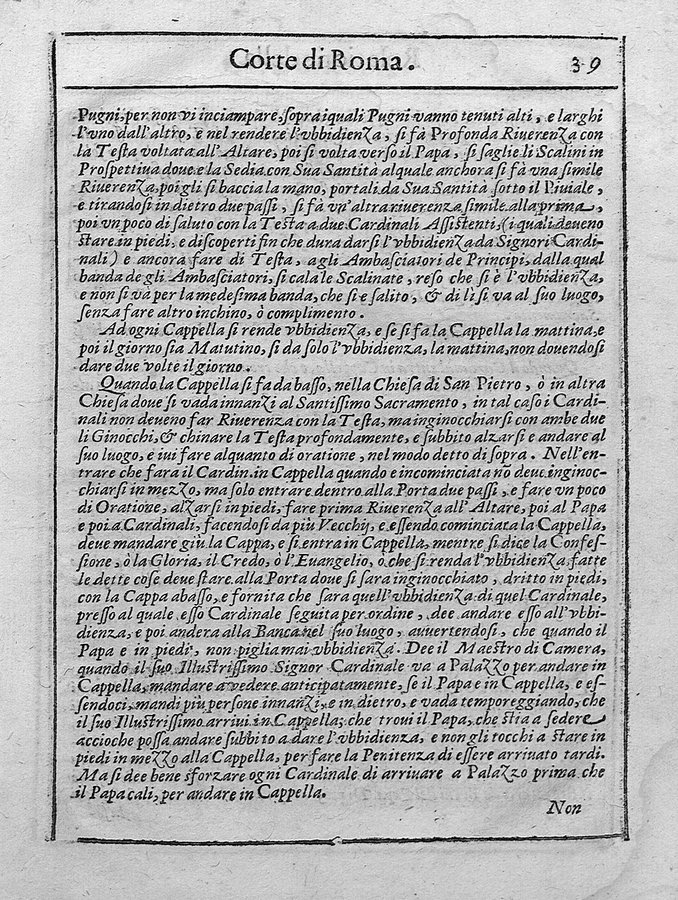 Corte di Roma. 39
Pugni, per non vi inciampare, sopra i quali Pugni vanno tenuti alti, e larghi
l'vno dall'altro, e nel rendere l'vbbidienza, si fà Profonda Riuerenza con
la Testa voltata all'Altare, poi si volta verso il Papa, si saglie li Scalini in
Prospettiua doue e la Sedia con Sua Santità al quale anchora si fà vna simile
Riuerenza, poi gli si baccia la mano, portali da Sua Santità sotto il Piuiale,
e tirandosi in dietro due passi, si fà vn'altra riuerenza simile alla prima,
poi vn poco di saluto con la Testa a due Cardinali Assistenti, (i quali deueno
stare in piedi, e discoperti fin che dura darsi l'vbbidienza da Signori Cardi-
nali) e ancora fare di Testa, agli Ambasciatori de Principi, dalla qual
banda de gli Ambasciatori, si cala le Scalinate, reso che si è l'vbbidienza,
e non si và per la medesima banda, che si e salito, & di lì si va al suo luogo,
senza fare altro inchino, ò complimento.
Ad ogni Cappella si rende vbbidienza, e se si fà la Cappella la mattina, e
poi il giorno sia Matutino, si da solo l'vbbidienza, la mattina, non douendosi
dare due volte il giorno.
Quando la Cappella si fa da basso, nella Chiesa di San Pietro, ò in altra
Chiesa doue si vada innanzi al Santissimo Sacramento, in tal caso i Cardi-
nali non deueno far Riuerenza con la Testa, ma inginocchiarsi con ambe due
li Ginocchi, & chinare la Testa profondamente, e subbito alzarsi e andare al
suo luogo, e iui fare alquanto di oratione, nel modo detto di sopra. Nell'en-
trare che fara il Cardin. in Cappella quando e incominciata nõ deue inginoc-
chiarsi in mezzo, ma solo entrare dentro alla Porta due passi, e fare vn poco
di Oratione, alzarsi in piedi, fare prima Riuerenza all'Altare, poi al Papa
e poi a Cardinali, facendosi da più Vecchij, e essendo cominciata la Cappella,
deue mandare giù la Cappa, e si entra in Cappella, mentre si dice la Confes-
sione, ò la Gloria, il Credo, ò l'Euangelio, ò che si renda l'vbbidienza fatte
le dette cose deue stare alla Porta doue si sara inginocchiato, dritto in piedi,
con la Cappa abasso, e fornita che sara quell'vbbidienza di quel Cardinale,
presso al quale esso Cardinale seguita per ordine, dee andare esso all'vbbi-
dienza, e poi andera alla Banca nel suo luogo, auuertendosi, che quando il
Papa e in piedi, non piglia mai vbbidienza. Dee il Maestro di Camera,
quando il suo Illustrissimo Signor Cardinale va a Palazzo per andare in
Cappella, mandare a vedere anticipatamente, se il Papa e in Cappella, e es-
sendoci, mandi piu persone innanzi, e in dietro, e vada temporeggiando, che
il suo Illustrissimo arriui in Cappella, che troui il Papa, che stia a sedere
accioche possa andare subbito a dare l'vbbidienza, e non gli tocchi a stare in
piedi in mezzo alla Cappella, per fare la Penitenza di essere arriuato tardi.
Ma si dee bene sforzare ogni Cardinale di arriuare a Palazzo prima che
il Papa cali, per andare in Cappella.
Non